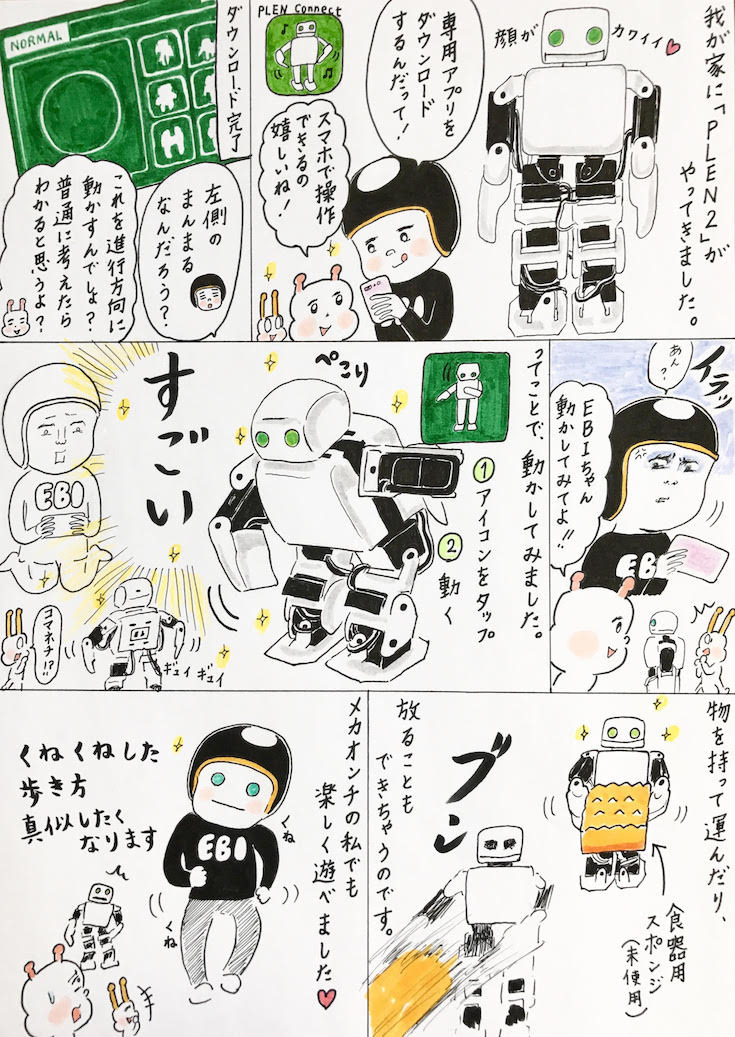 我が家に「PLEN2」が
やってきました。
顔が
カワイイ
専用アプリを
ダウンロード
するんだって!
PLEN Connect
スマホで操作
できるの
嬉しいね!
ダウンロード完了
NORMAL
左側の
まんまる
なんだろう?
これを進行方向に
動かすんでしょ?
普通に考えたら
わかると思うよ?
イラッ
あん?
EBIちゃん
動かしてみてよ!!
EBI
ってことで、動かしてみました。
①アイコンをタップ
②動く
ぺこり
すごい
EBI
コマネチ!?
ギュイ
ギュイ
物を持って運んだり、
食器用
スポンジ
(未使用)
放ることも
できちゃうのです。
ブン
メカオンチの私でも
楽しく遊べました
EBI
くね
くね
くねくねした
歩き方
真似したく
なります